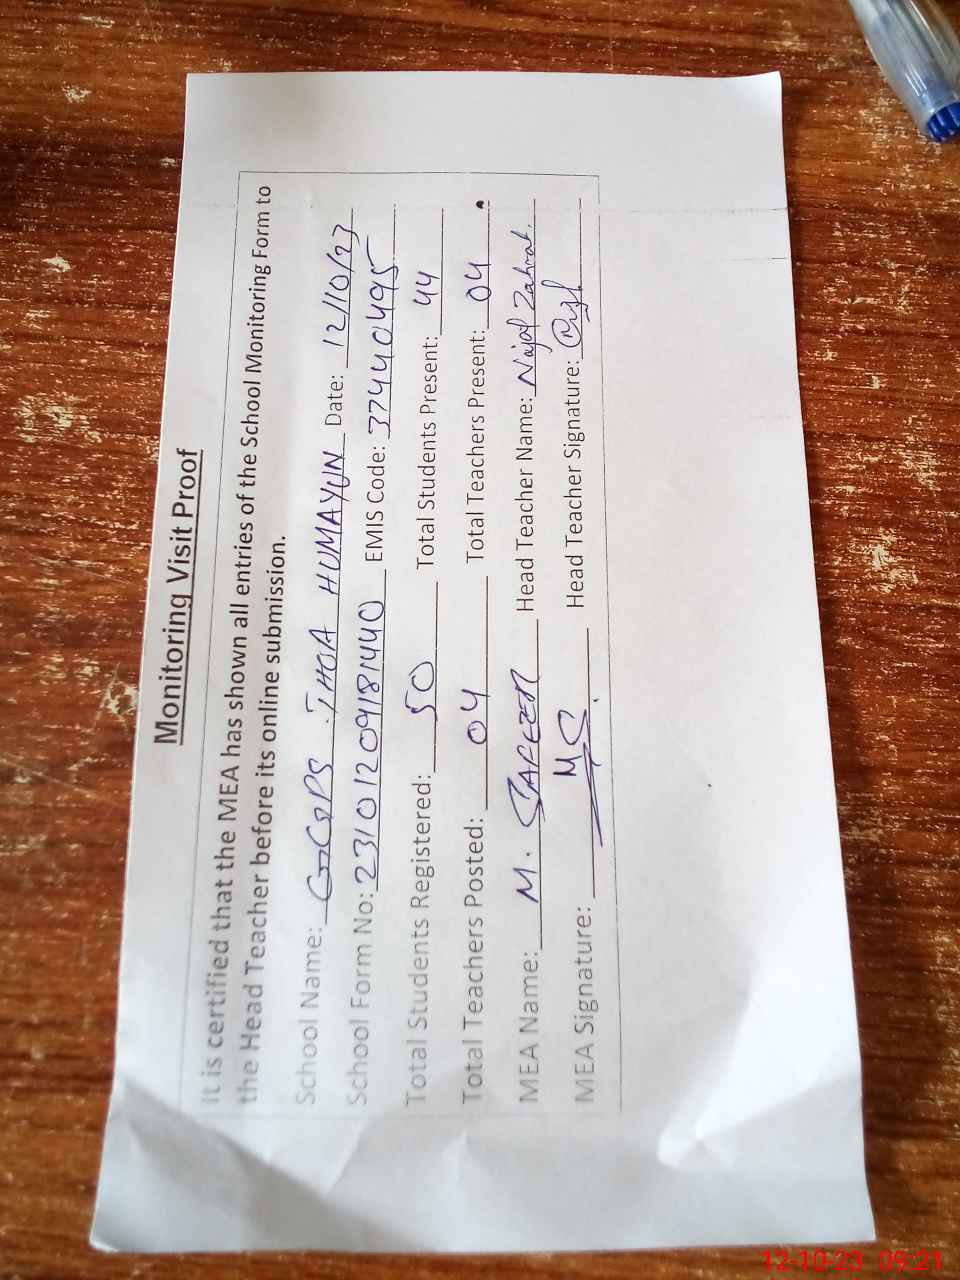 Monitoring Visit Proof
It is certified that the MEA has shown all entries of the School Monitoring Form to
the Head Teacher before its online submission.
School Name: GGPS THOA HUMAYUN Date: 12/10/23
School Form No: 23101209181440 EMIS Code: 37440495
Total Students Registered: 50 Total Students Present: 44
Total Teachers Posted: 04 Total Teachers Present: 04
MEA Name: M. SAFEER Head Teacher Name: Najaf Zahrat.
MEA Signature: MS Head Teacher Signature:
12-10-23 09:21